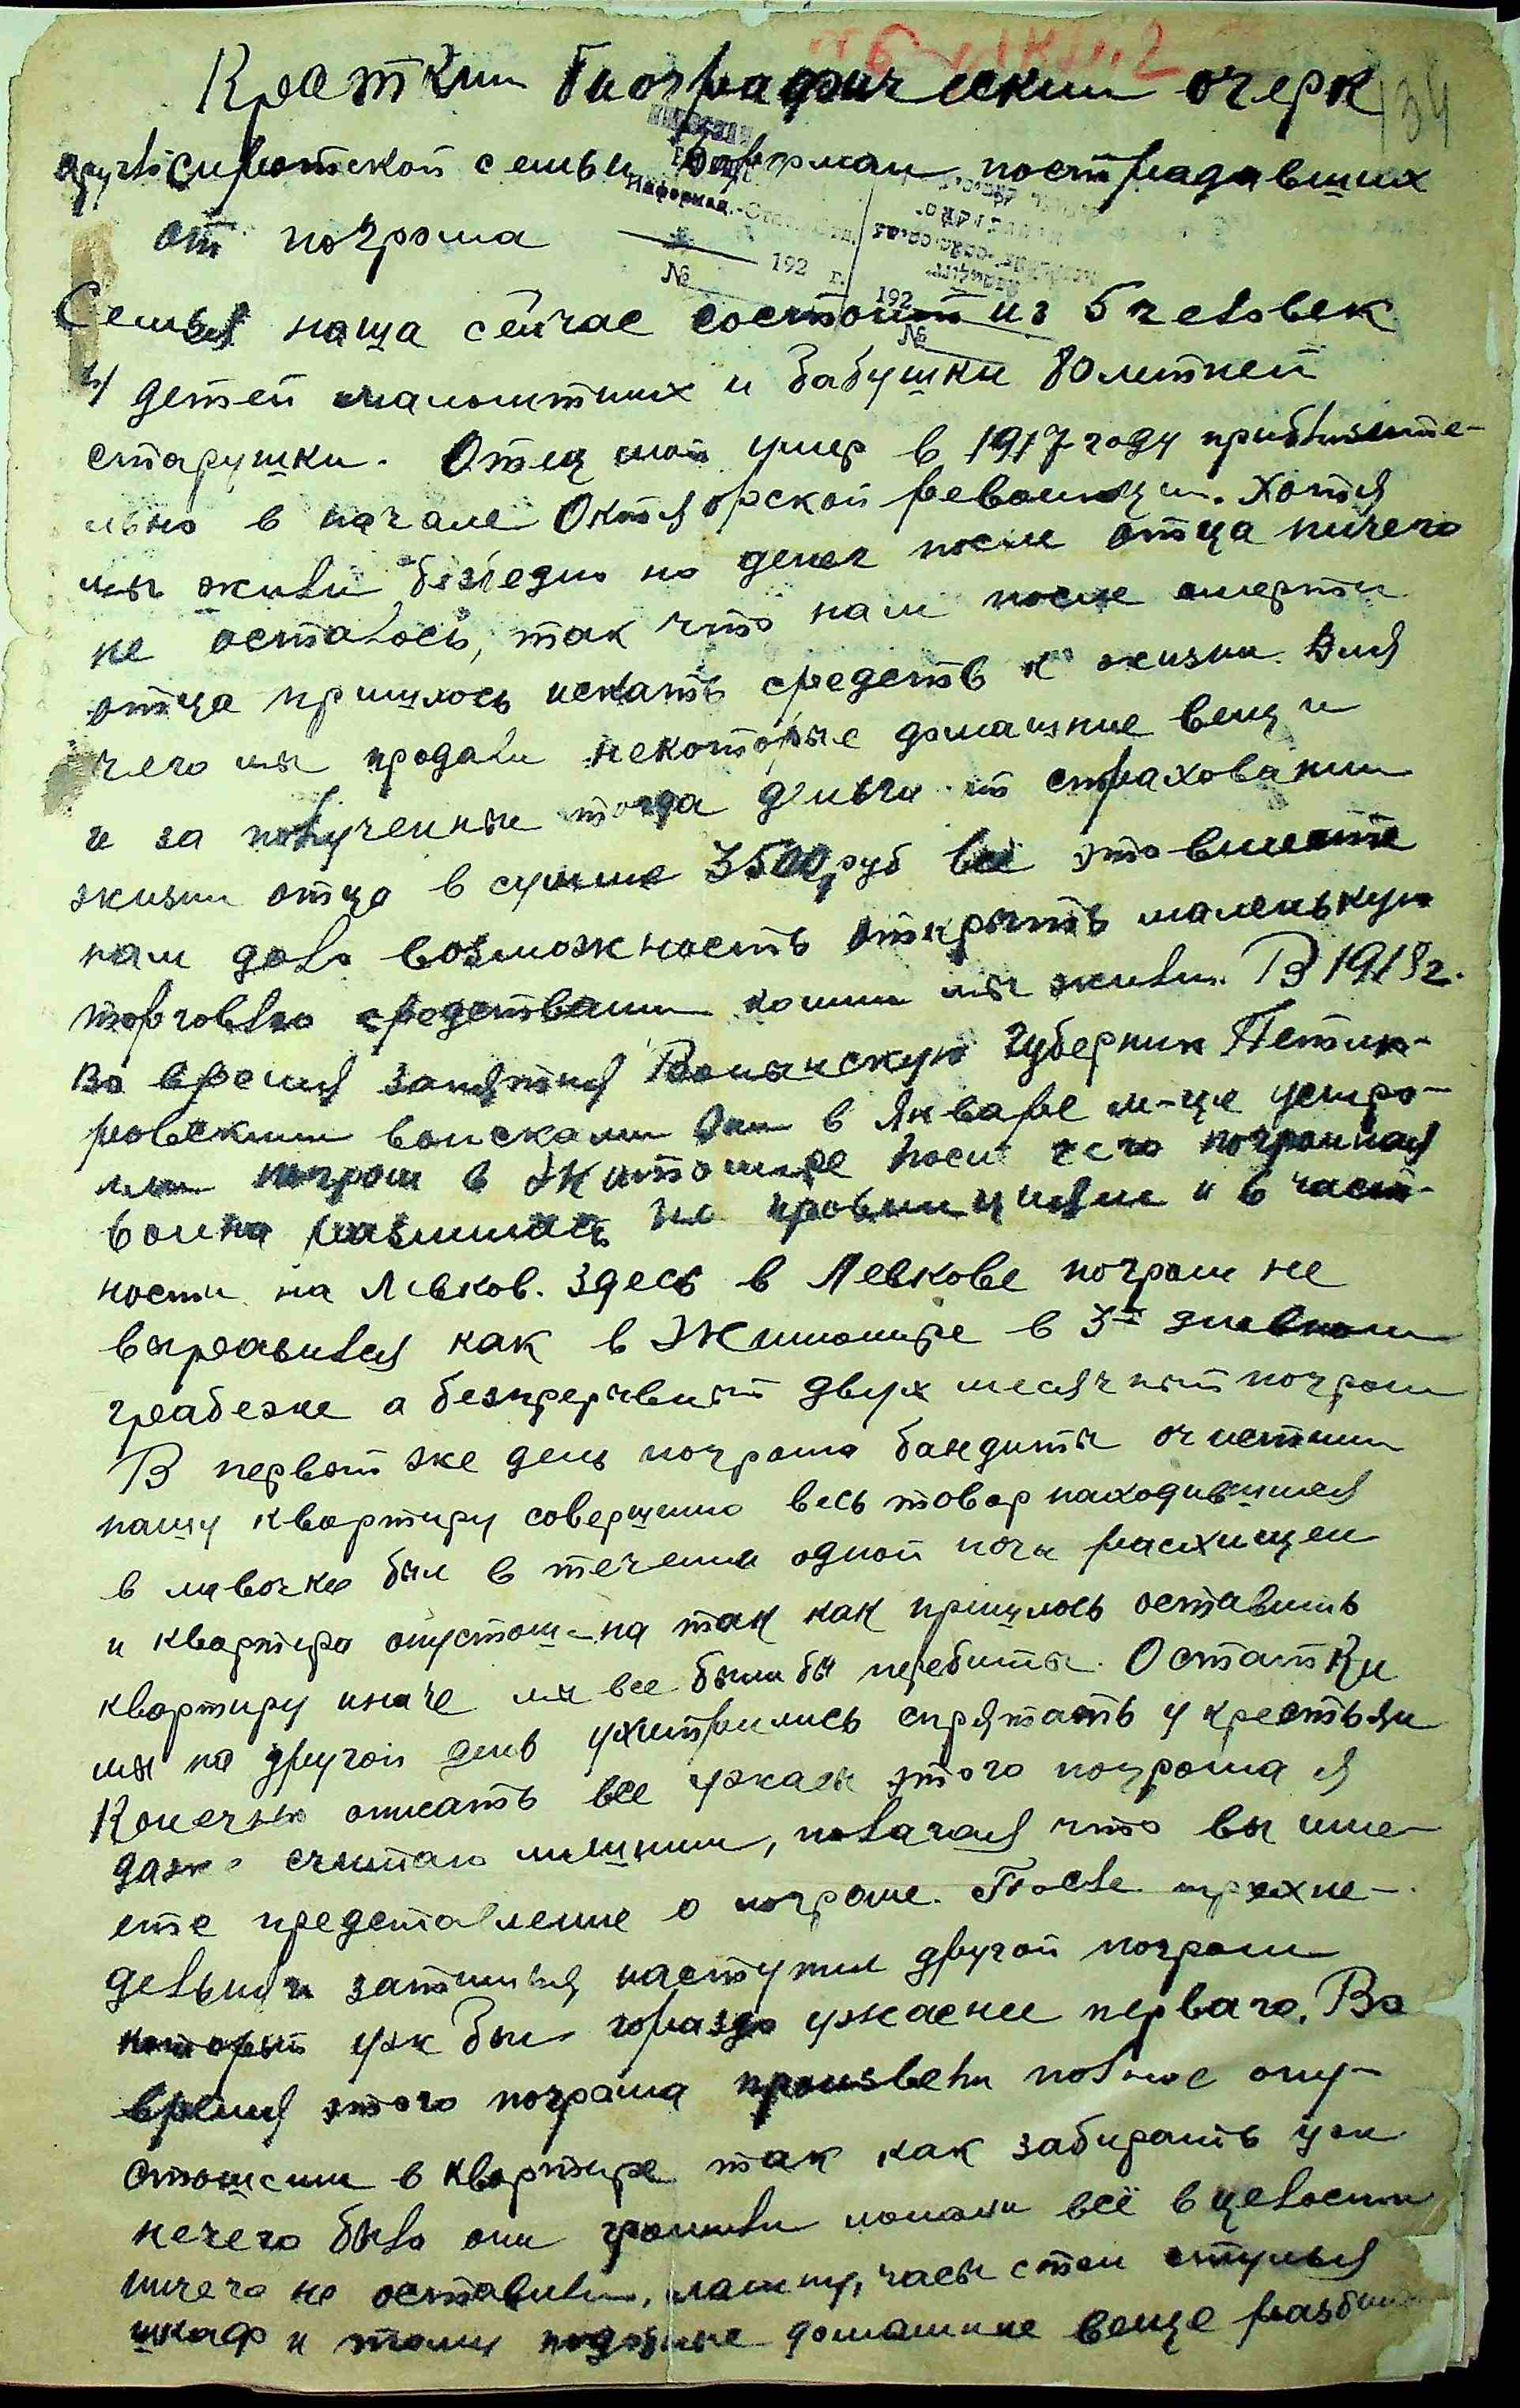 Краткий биографический очерк
134
кругло сиротской семьи пострадавших
от погрома
Информац.-Стат. Отд.
192 г.
№
192
№
Семья наша сейчас состоит из 5 человек
4/ детей малолетних и бабушки 80 летней
старушки. Отец мой умер в 1917 году приблизите-
льно в начале Октябрской революции. Хотя
мы жили безбедно но денег после отца ничего
не осталось, так что нам после смерти
отца пришлось искать средств к жизни. Для
чего мы продали некоторые домашние вещи
и за полученные тогда деньги от страхования
жизни отца в сумме 3500 руб всё это вместе
нам дало возможность открыть маленькую
торговлю средствами коими мы жили. В 1919 г.
во время занятия Волынскую губернии Петлю-
ровскими войсками они в Январе м-це устро-
или погром в Житомире после чего погромная
волна разлилась по провинциям и в част-
ности на Левков. Здесь в Левкове погром не
выразился как в Житомире в 3-х дневном
грабеже а безпрерывный двух месячный погром
В первый же день погрома бандиты очистили
нашу квартиру совершенно весь товар находившийся
в лавочке был в течении одной ночи расхищен
и квартира опустошена так как пришлось оставить
квартиру иначе мы все были бы перебиты. Остатки
мы на другой день ухитрились спрятать у крестьян
Конечно описать все ужасы этого погрома я
даже считаю лишним, полагая что вы име-
ете представление о погроме. После трехне-
дельных затишья, наступил другой погром
который уж был гораздо ужаснее первого. Во
время этого погрома произвели полное опу-
стошение в квартире так как забирать уж
нечего было они громили ломали всё в целости
ничего не оставили, лампу, часы стол стулья
шкаф и тому подобные домашние веще разбили